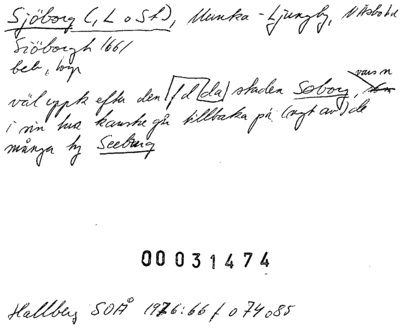 Sjöborg (, L o St), Munka-Ljungby, N Åsbo hd
Siöborgh 1661
beb., torp
väl uppk efter den f d da staden Søborg, vars n
i sin tur kanske går tillbaka på (ngt av) de
många ty Seeburg
00031474
Hallberg SOÅ 1976:66 f o 74 o 85